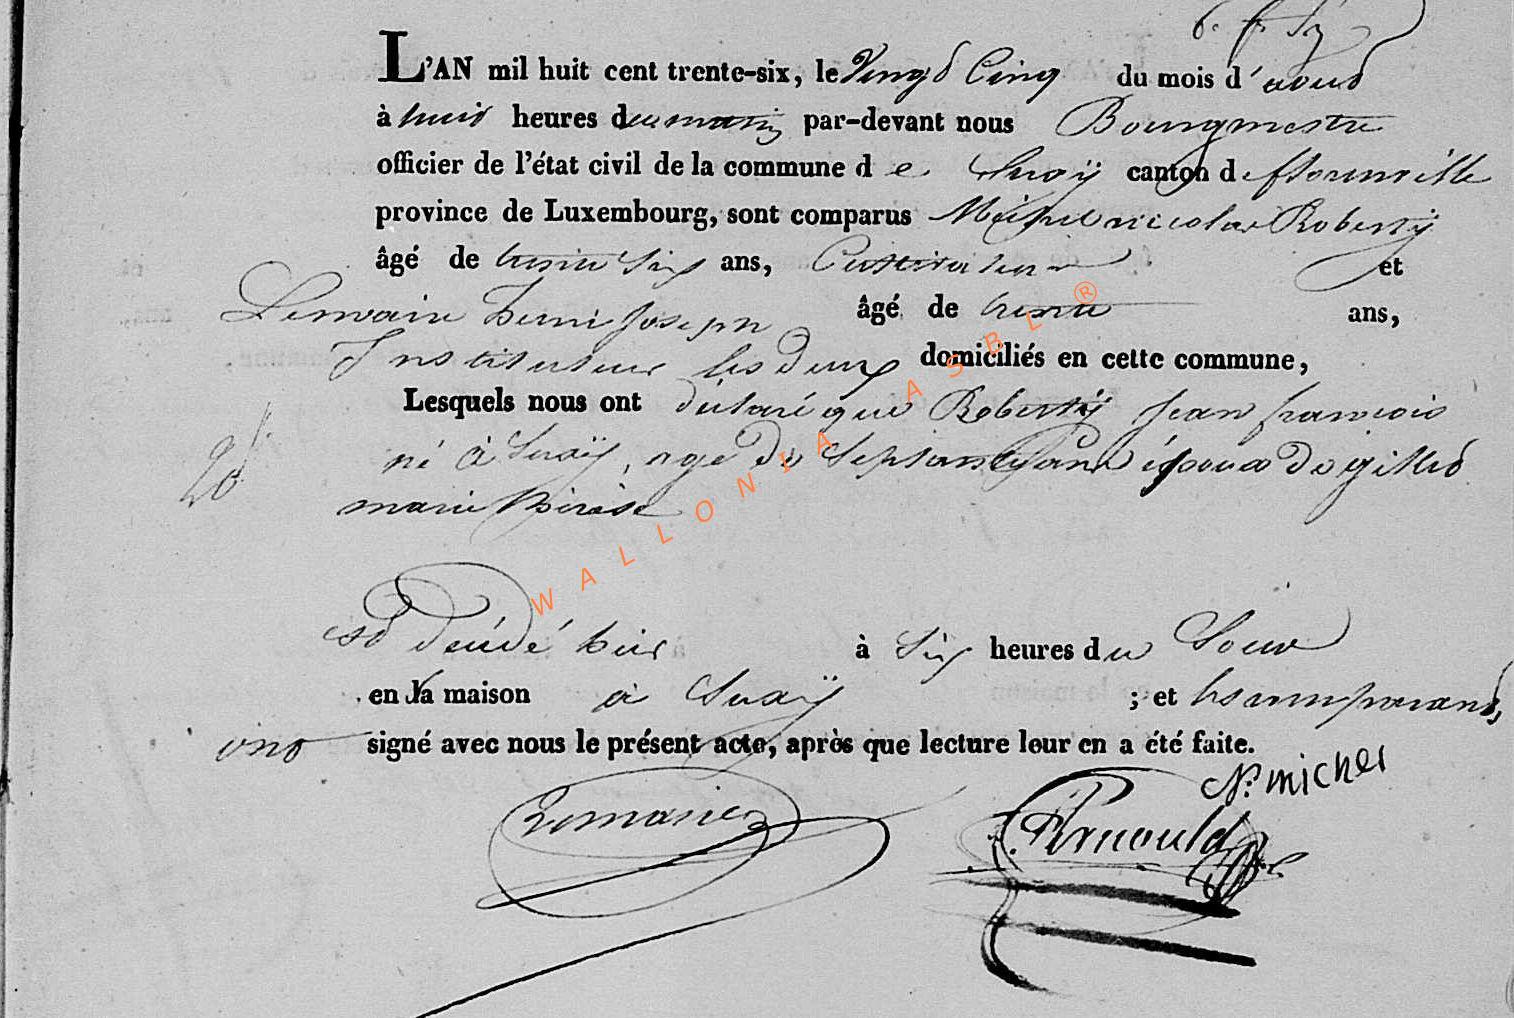 L'AN mil huit cent trente-six, le Vingt Cinq du mois d'aout
à huit heures du matin par-devant nous Bourgmestre
officier de l'état civil de la commune de Suxÿ canton de florenville
province de Luxembourg, sont comparus Michel nicolas Robertÿ
âgé de trente Six ans, Cultivateur et
Lemaire henri joseph âgé de trente ans,
Instituteur les deux domiciliés en cette commune,
Lesquels nous ont déclaré que Robertÿ jean francois
né à Suxÿ, agé de Septante ans époux de gillet
marie thérèse
est décédé hier à Six heures du Soir
en la maison à Suxÿ ; et les comparants,
ont signé avec nous le présent acte, après que lecture leur en a été faite.
N. michel
Arnould
WALLONIA ASBL ®